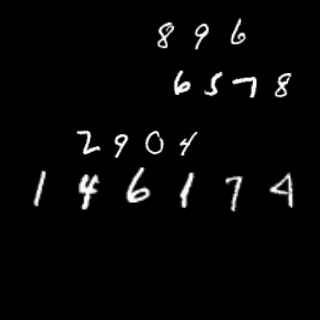 896
6578
2904
146174